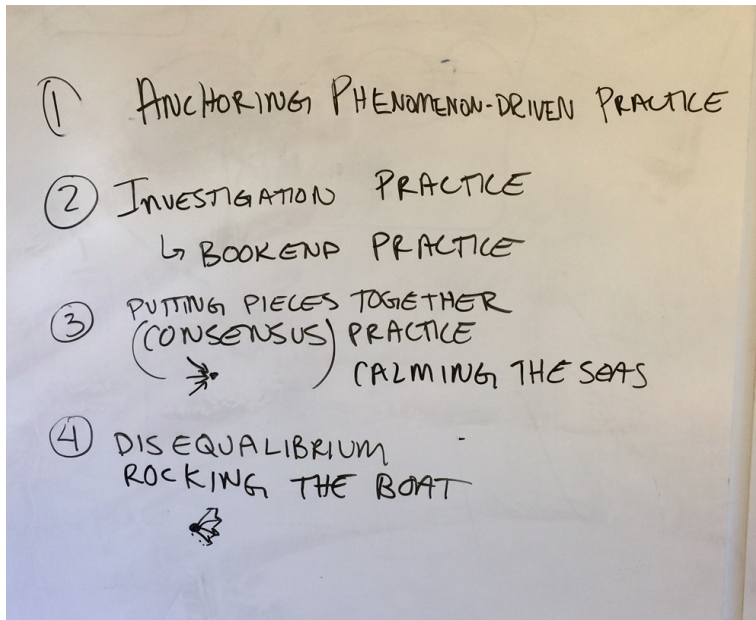 ① ANCHORING PHENOMENON-DRIVEN PRACTICE
② INVESTIGATION PRACTICE
↳ BOOKEND PRACTICE
③ PUTTING PIECES TOGETHER
(CONSENSUS) PRACTICE
CALMING THE SEAS
④ DISEQUALIBRIUM
ROCKING THE BOAT